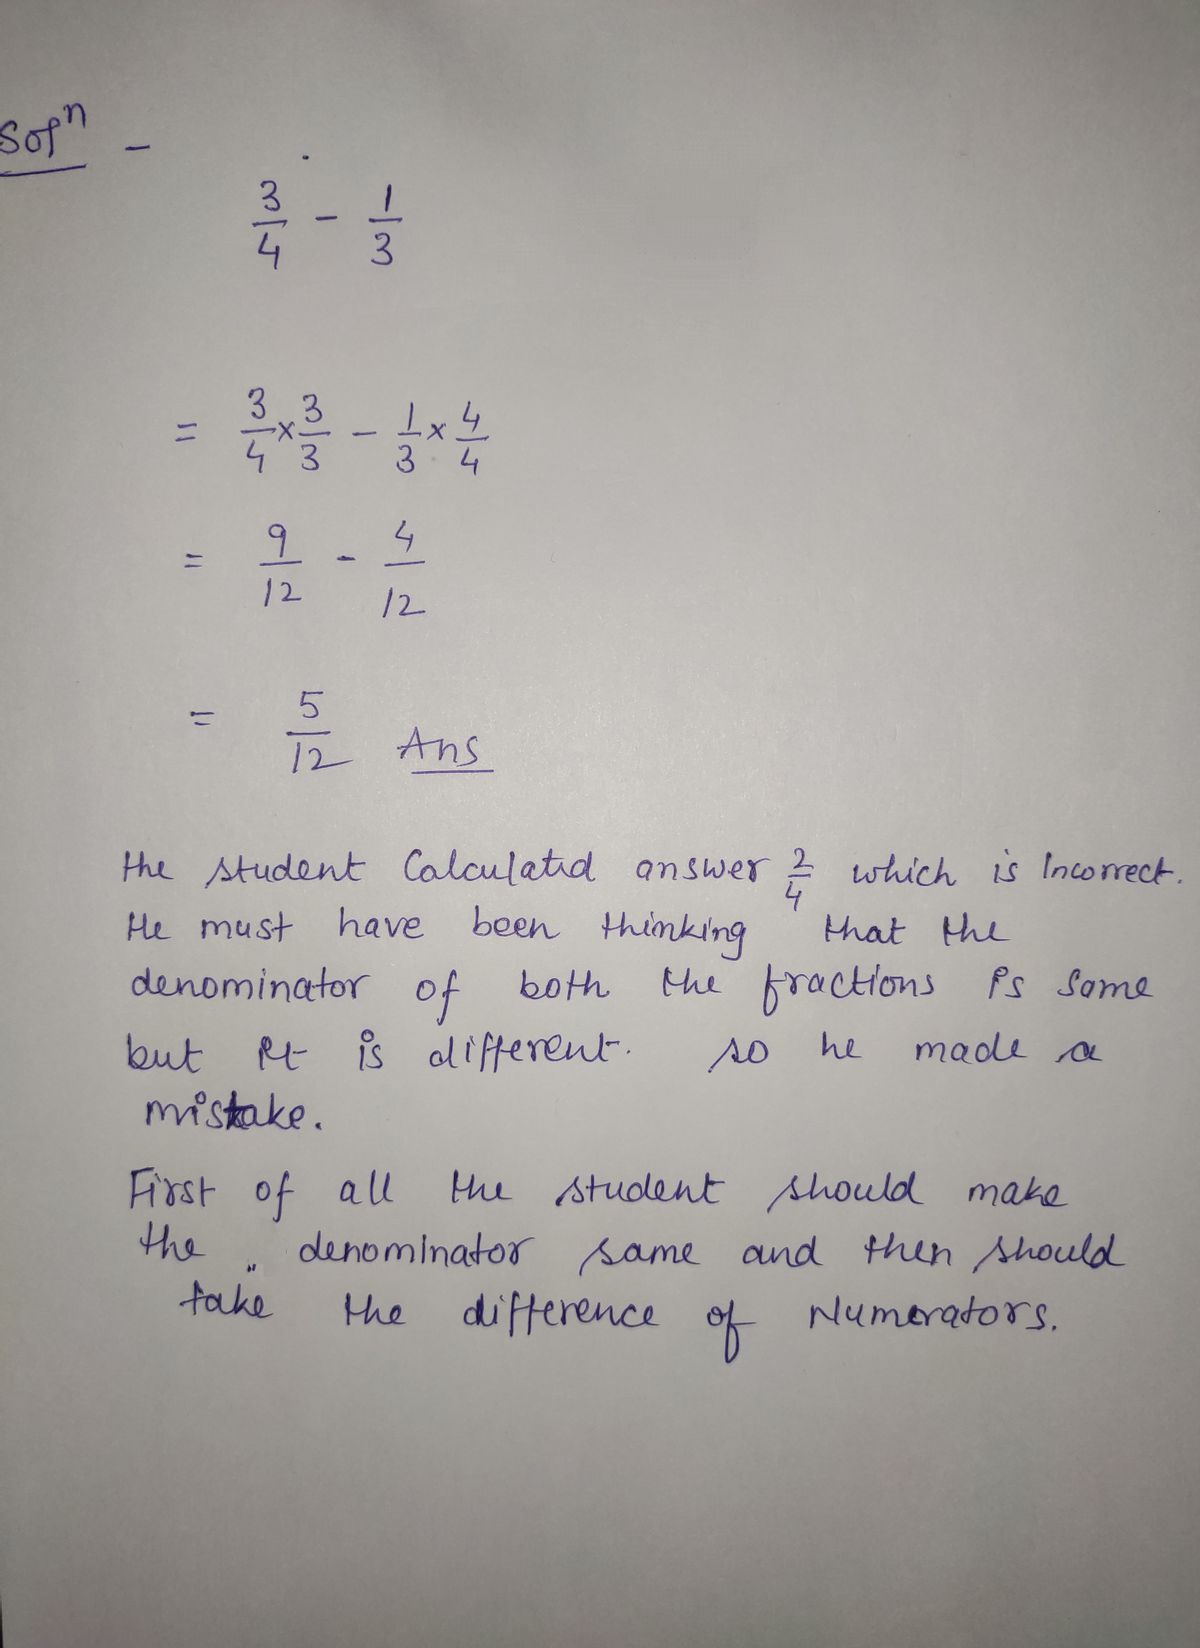 Solⁿ -
3/4 - 1/3
= 3/4 × 3/3 - 1/3 × 4/4
= 9/12 - 4/12
= 5/12 Ans
the student Calculated answer 2/4 which is Incorrect.
He must have been thinking that the
denominator of both the fractions is same
but it is different. so he made a
mistake.
First of all the student should make
the denominator same and then should
take the difference of Numerators.